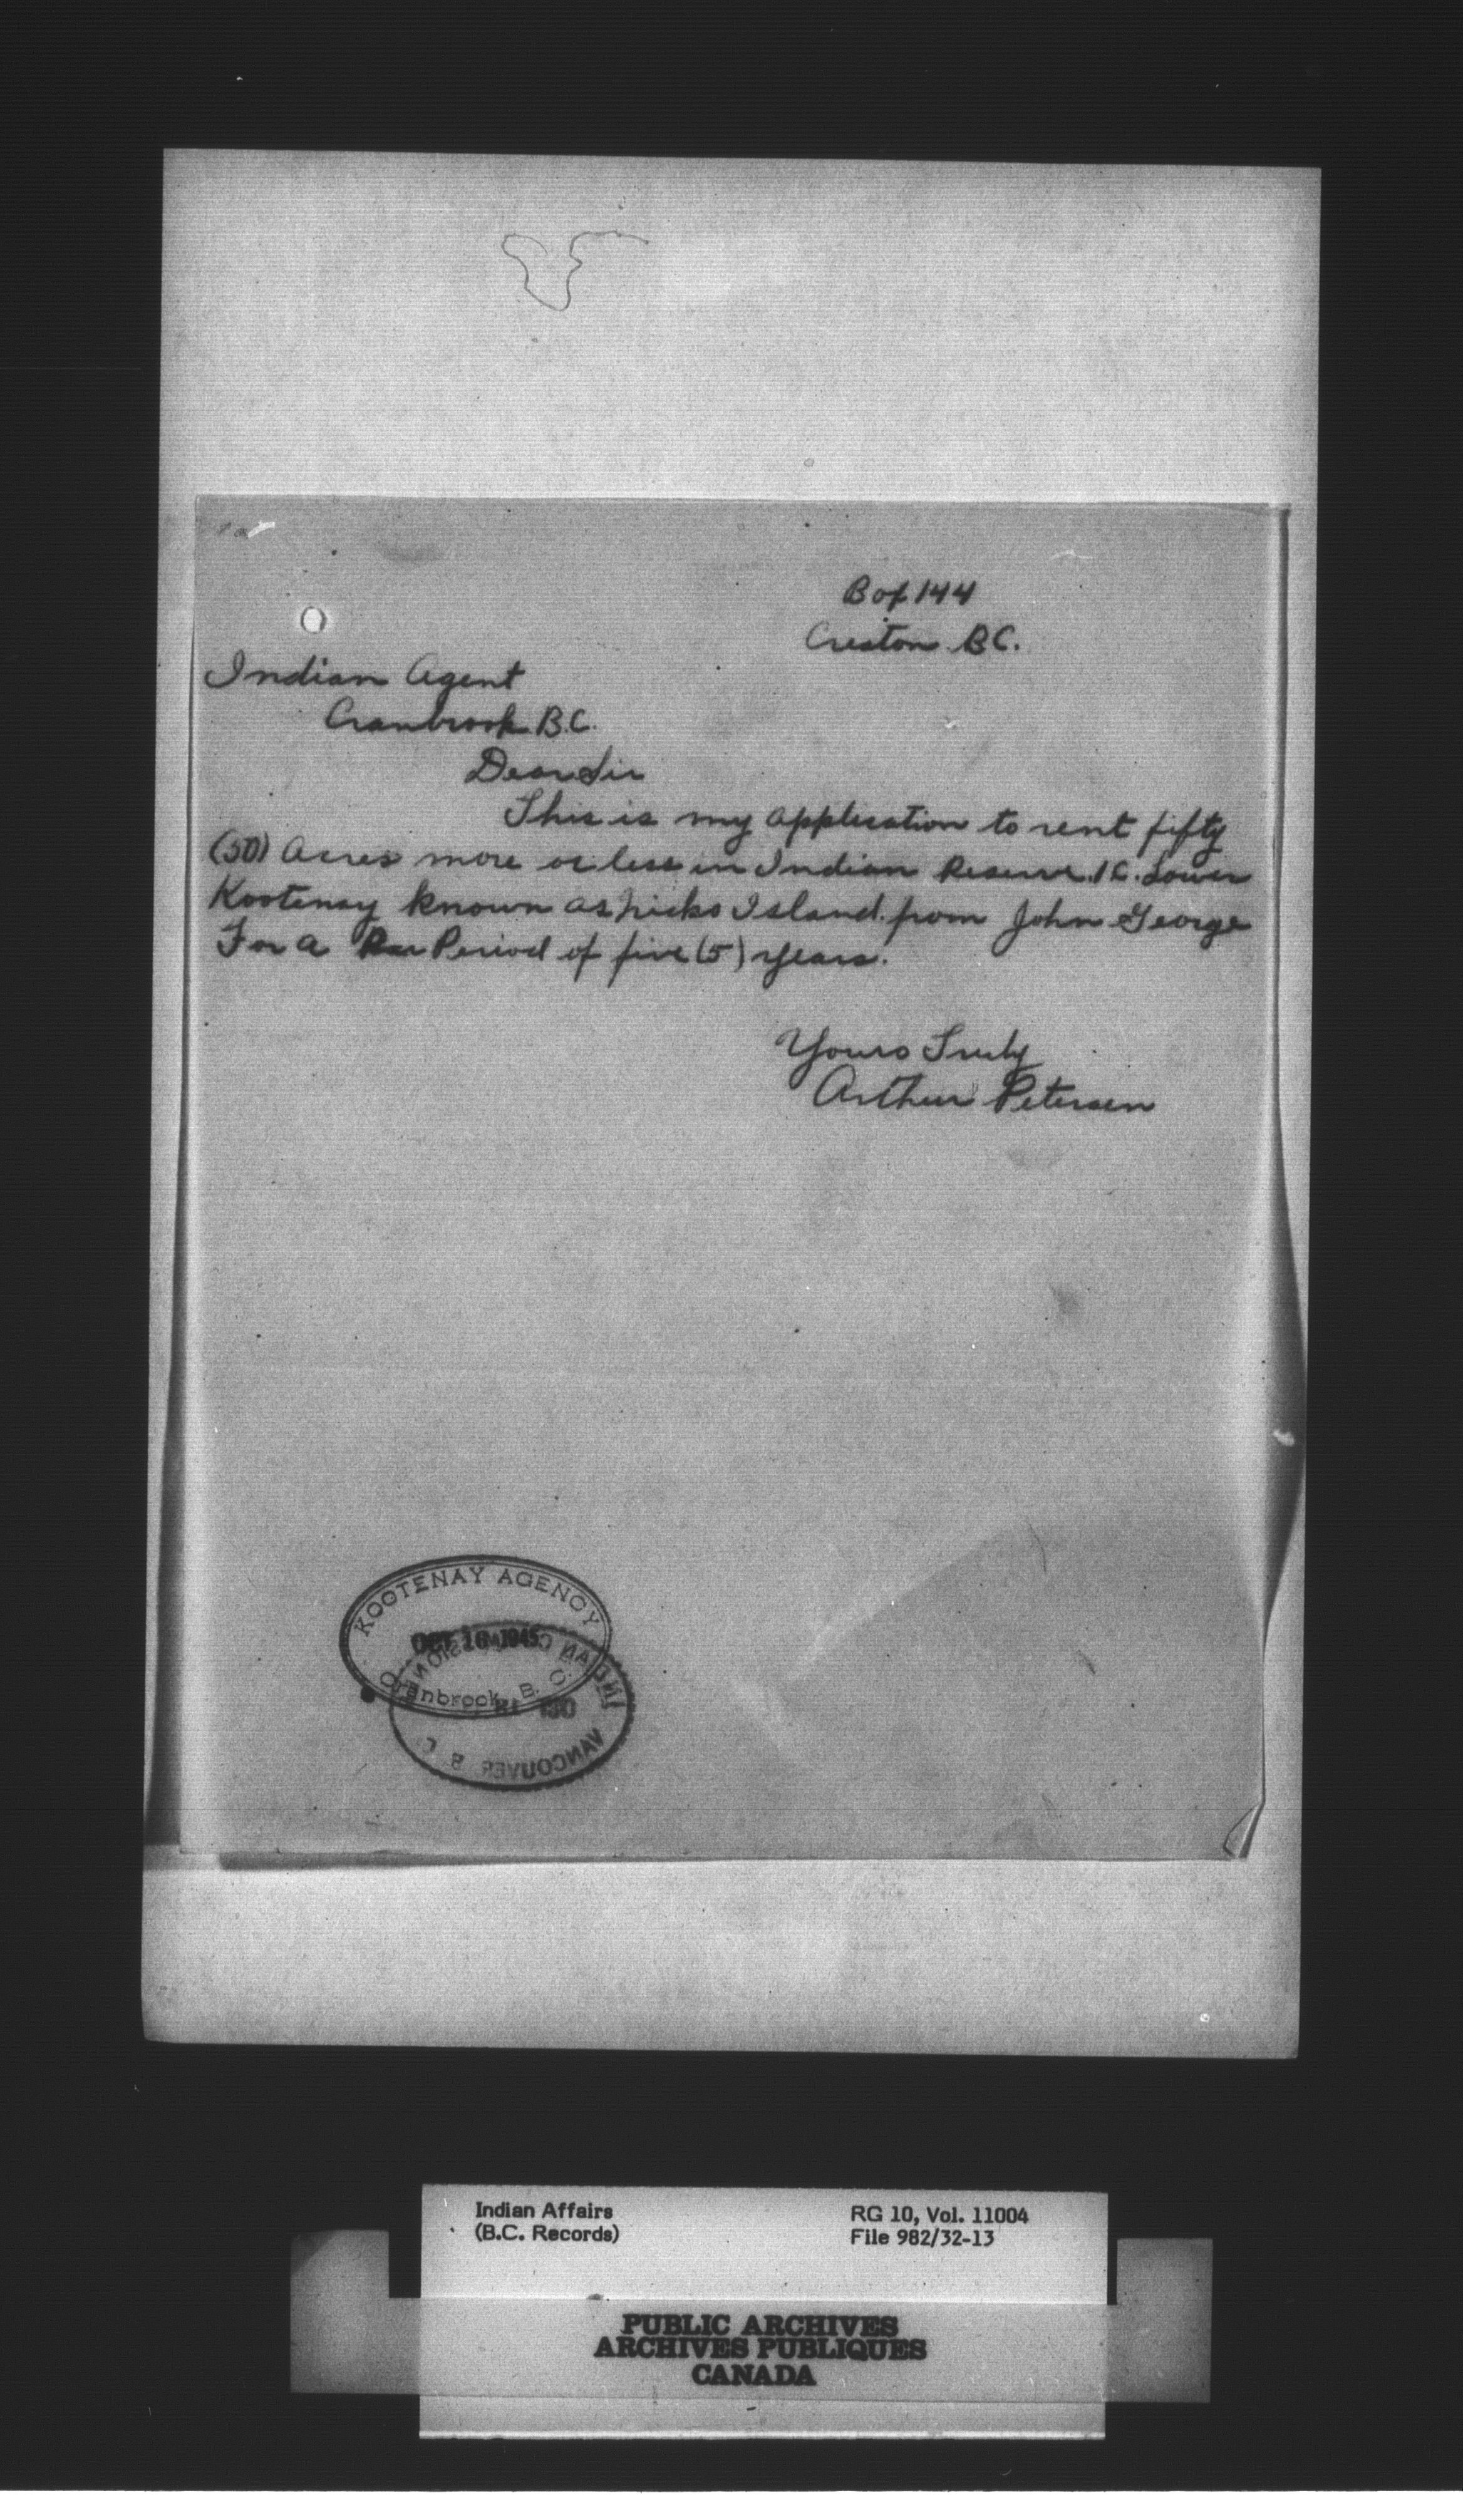 Box 144
Creston B.C.
Indian Agent
Cranbrook B.C.
Dear Sir
This is my application to rent fifty
(50) Acres more or less in Indian Reserve 1C. Lower
Kootenay known as nicks Island. from John George
For a Period of five (5) years.
Yours Truly
Arthur Petersen
KOOTENAY AGENCY
OCT 16 1945
Cranbrook, B. C.
INDIAN
VANCOUVER B C
Indian Affairs
(B.C. Records)
RG 10, Vol. 11004
File 982/32-13
PUBLIC ARCHIVES
ARCHIVES PUBLIQUES
CANADA